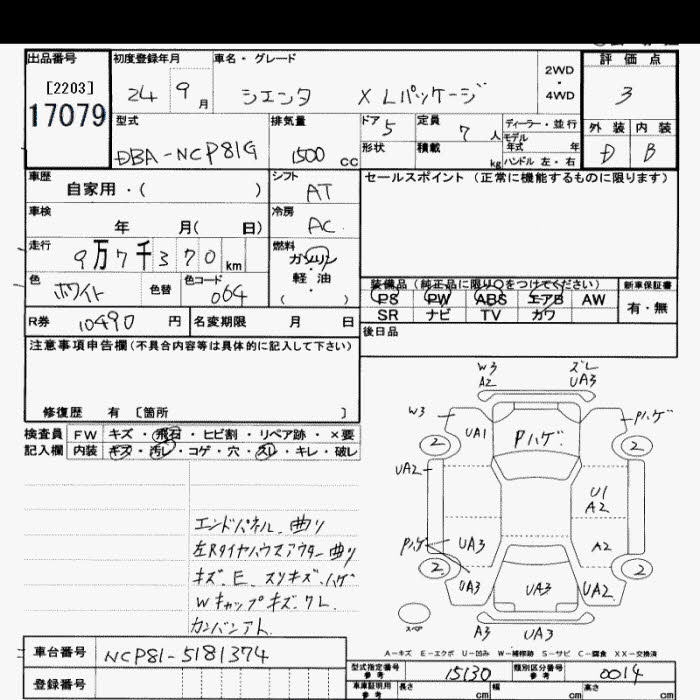 出品番号 初度登録年月 車名・グレード 評価点
[2203] 24 9月 シエンタ X Lパッケージ 2WD・4WD 3
17079
型式 排気量 ドア 5 定員 7人 ディーラー・並行 外装 内装
DBA-NCP81G 1500cc 形状 積載 kg モデル年式 年 D B
ハンドル 左・右
車歴 シフト セールスポイント (正常に機能するものに限ります)
自家用・( ) AT
車検 冷房
年 月( 日) AC
走行 燃料
9万7千370km ガソリン
色 色替 色コード 軽油
ホワイト 064 ( ・ )
装備品 (純正品に限り○をつけてください) 新車保証書
PS PW ABS エアB AW 有・無
SR ナビ TV カワ
R券 10490円 名変期限 月 日
後日品
注意事項申告欄(不具合内容等は具体的に記入して下さい)
修復歴 有 [箇所 ]
検査員 FW キズ・飛石・ヒビ割・リペア跡・×要
記入欄 内装 キズ・汚レ・コゲ・穴・スレ・キレ・破レ
W3 A2 ズレ UA3
W3 UA1 Pハゲ Pハゲ
2 2
UA2 U1 A2
Pハゲ UA3 A2
2 2
UA3 UA3 UA2
スペア A3 UA3
エンドパネル曲り
左Rタイヤハウスアウター曲り
キズ.E.スリキズ.ハゲ
Wキャップキズ.ワレ
カンバンアト.
A-キズ E-エクボ U-凹み W-補修跡 S-サビ C-腐食 XX-交換済
車台番号 NCP81-5181374
型式指定番号 参考 15130 類別区分番号 参考 0014
登録番号 車庫証明用 参考 長さ cm 幅 cm 高さ cm